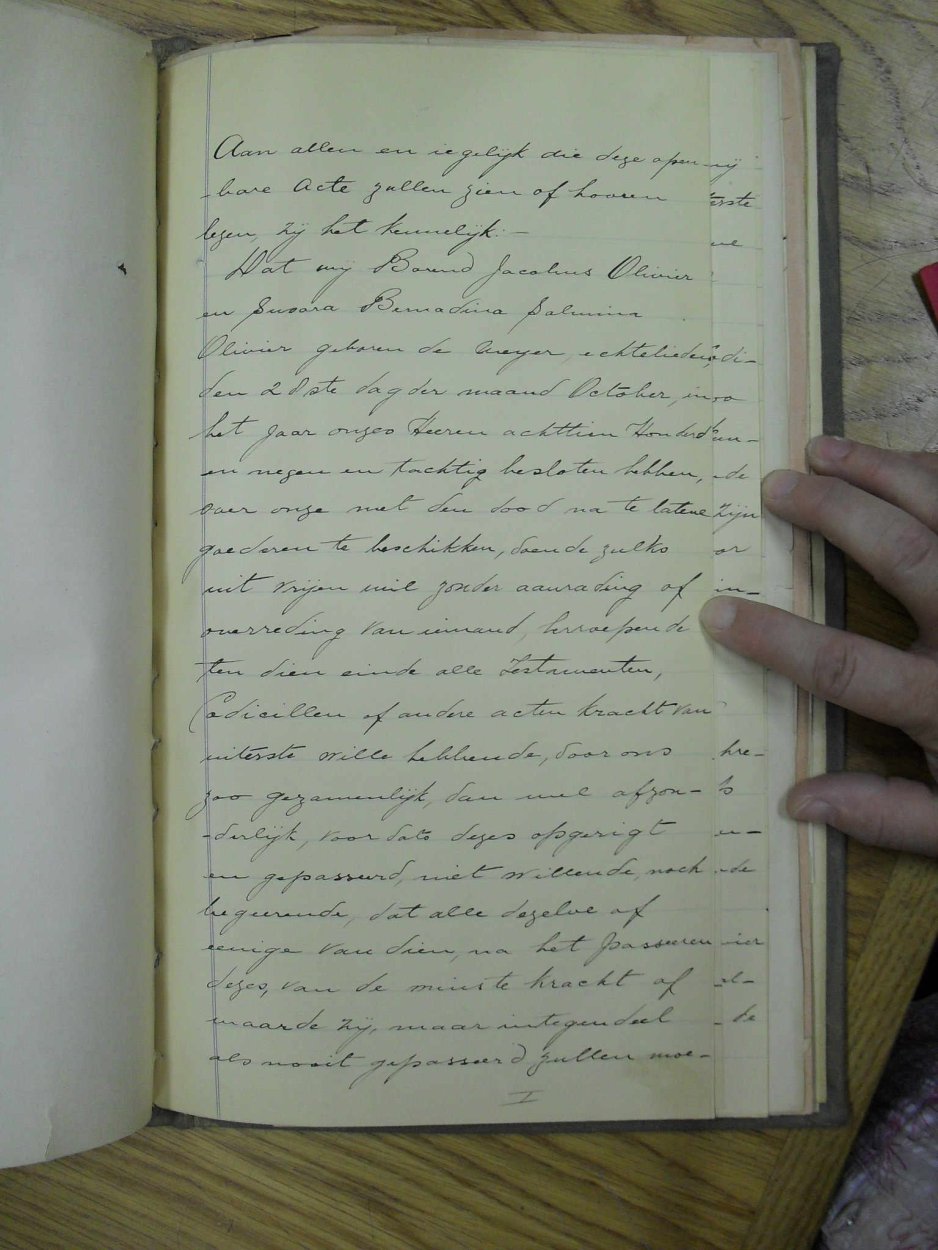 Aan allen en iegelijk die deze open-
-bare Acte zullen zien of hooren
lezen, zij het kennelijk:-
Dat wij Barend Jacobus Olivier
en Susara Bernadina Salmina
Olivier geboren de Meyer, echtelieden,
den 28ste dag der maand October, in
het jaar onzes Heeren achttien Honderd
en negen en tachtig besloten hebben,
over onze met den dood na te latene
goederen te beschikken, doende zulks
uit vrijen wil zonder aanrading of
overreding van iemand, herroepende
ten dien einde alle Testamenten,
Codicillen of andere acten kracht van
uiterste wille hebbende, door ons
zoo gezamenlijk, dan wel afzon-
-derlijk, voor dato dezes opgerigt
en gepasseerd, niet willende, noch
begeerende, dat alle dezelve of
eenige van dien, na het passeeren
dezes, van de minste kracht of
waarde zij, maar integendeel
als nooit gepasseerd zullen moe-
I
erste
we
di-
de
zijn
or
in-
hre-
de
al-
- de